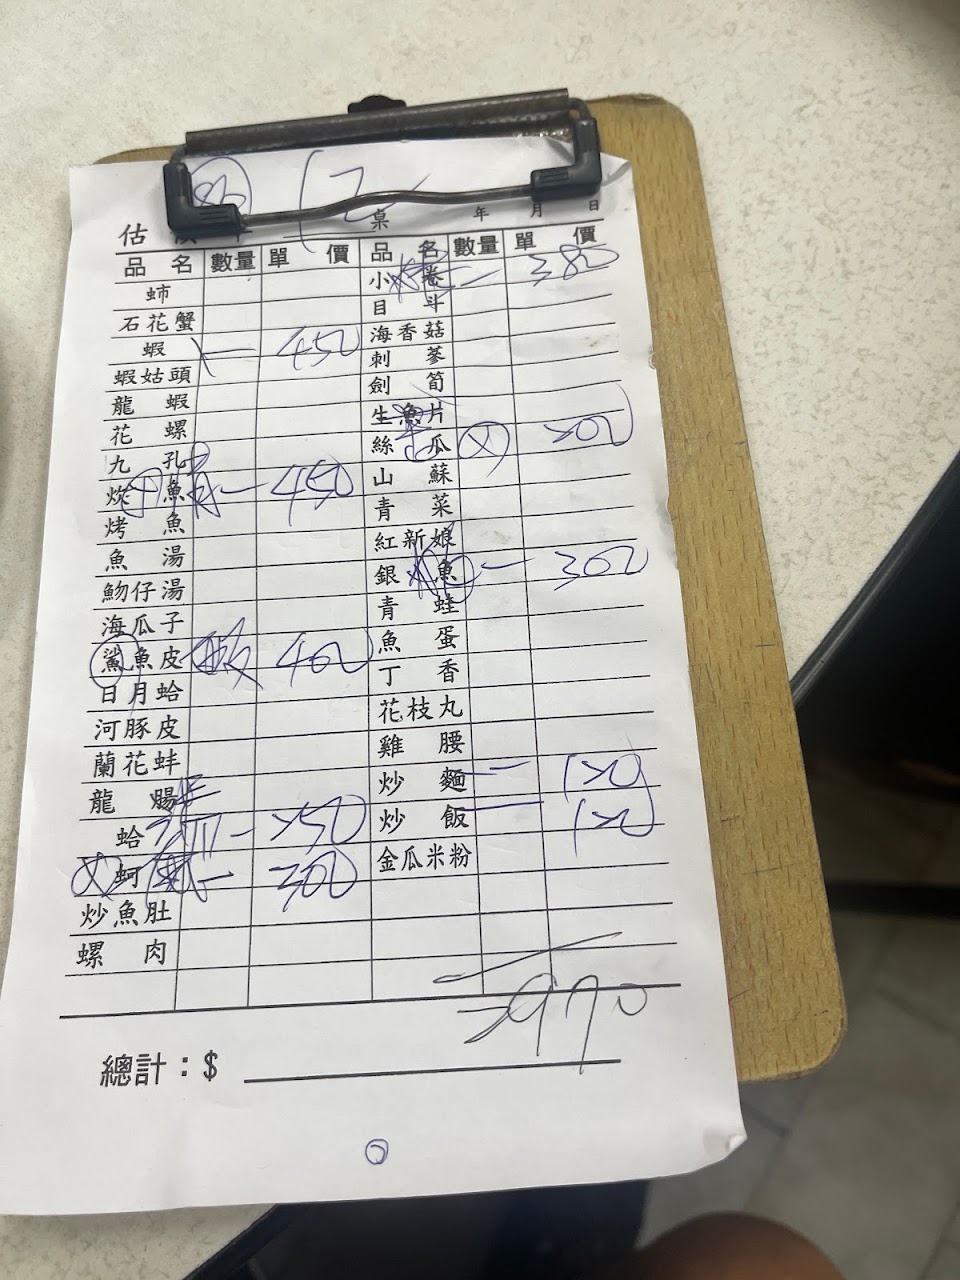 12
估 桌 年 月 日
品名 數量 單價 品名 數量 單價
蚵 小卷 一 380
石花蟹 目斗
蝦 一 450 海香菇
蝦姑頭 刺蔘
龍蝦 劍筍
花螺 生魚片
九孔 絲瓜 200
炊魚 一 450 山蘇
烤魚 青菜
魚湯 紅新娘
魩仔湯 銀魚 一 300
海瓜子 青蛙
鯊魚皮 400 魚蛋
日月蛤 丁香
河豚皮 花枝丸
蘭花蚌 雞腰
龍腸 炒麵 120
蛤 一 250 炒飯 120
蚵 一 300 金瓜米粉
炒魚肚
螺肉
2970
總計：$